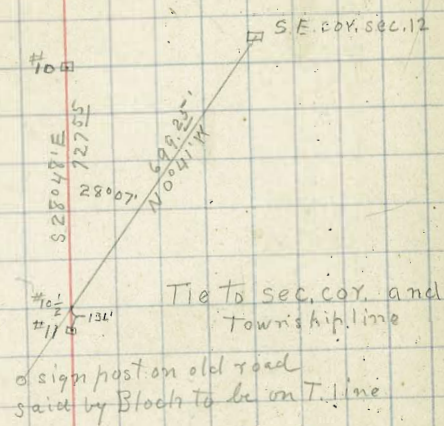 S.E. cor. sec. 12
#10
S 28°48' E
727.55
28°07'
699.25'
N 0°41' W
#10½
131'
#11
Tie to sec. cor. and
Township line
o sign post on old road
said by Bloch to be on T. line